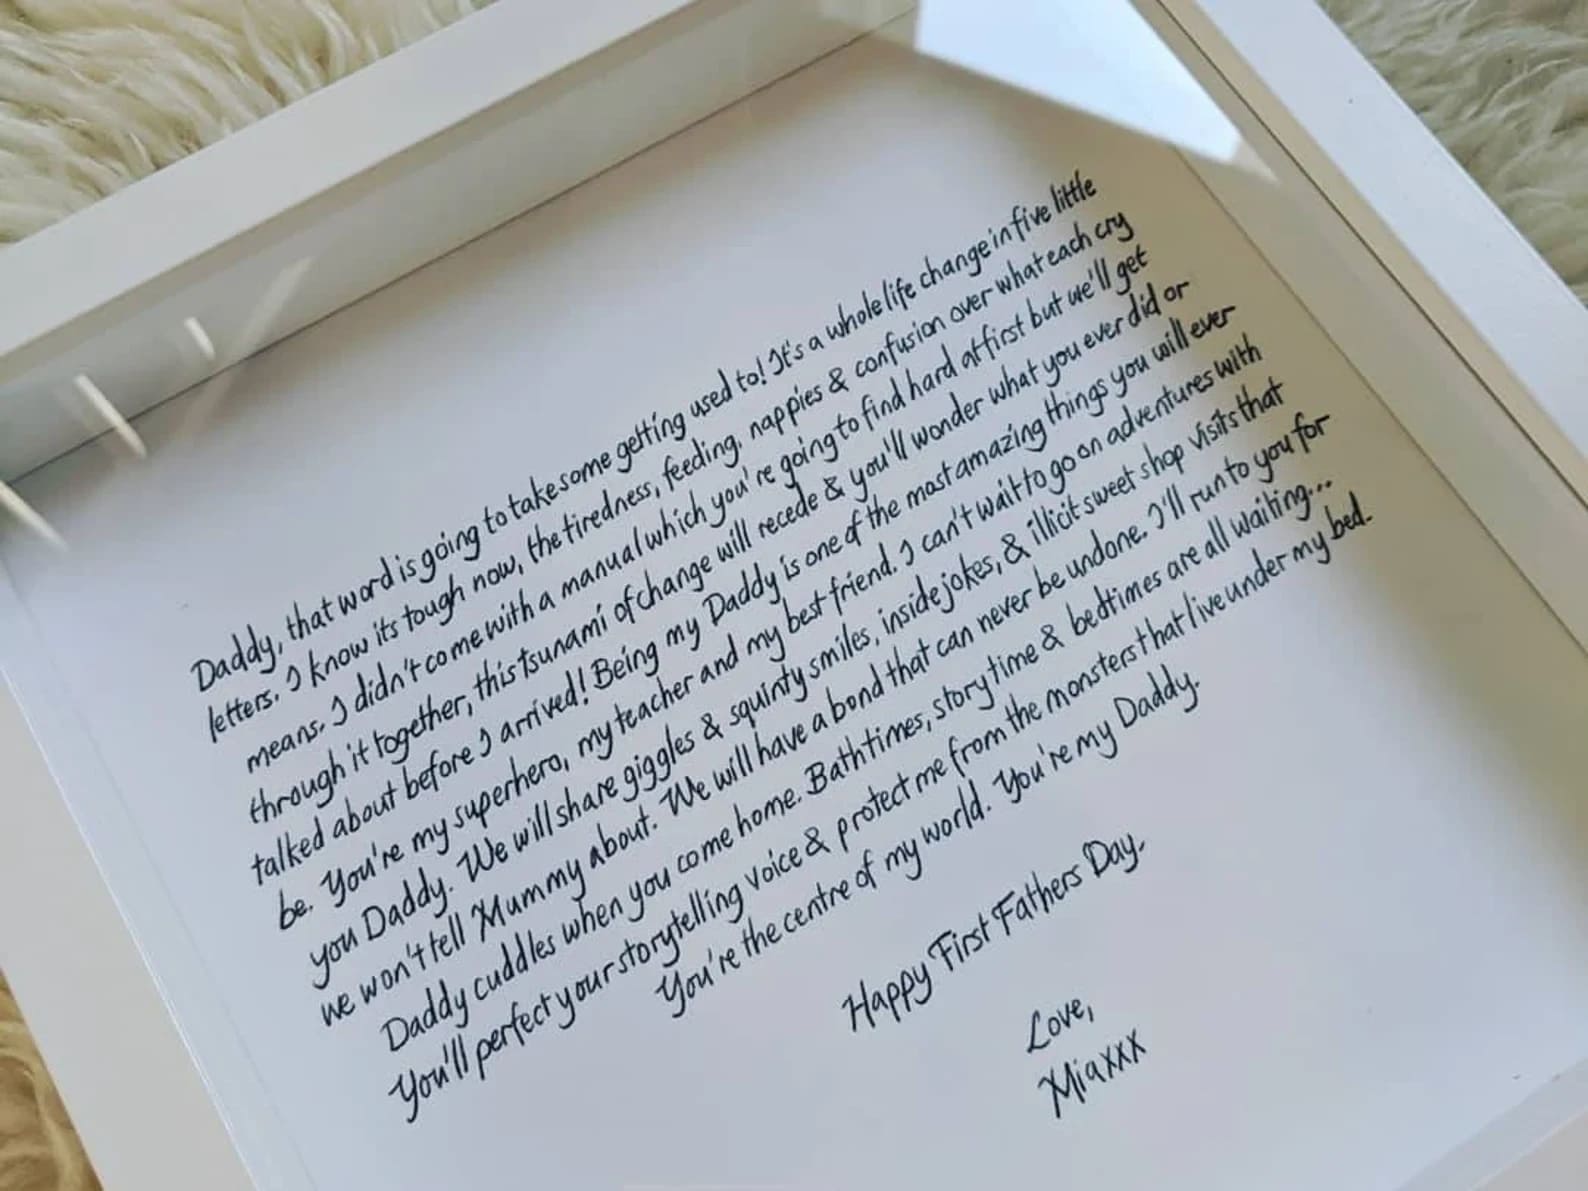 Daddy, that word is going to take some getting used to! It's a whole life change in five little
letters. I know its tough now, the tiredness, feeding, nappies & confusion over what each cry
means. I didn't come with a manual which you're going to find hard at first but we'll get
through it together, this tsunami of change will recede & you'll wonder what you ever did or
talked about before I arrived! Being my Daddy is one of the most amazing things you will ever
be. You're my superhero, my teacher and my best friend. I can't wait to go on adventures with
you Daddy. We will share giggles & squinty smiles, inside jokes, & illicit sweet shop visits that
we won't tell Mummy about. We will have a bond that can never be undone. I'll run to you for
Daddy cuddles when you come home. Bathtimes, story time & bedtimes are all waiting...
You'll perfect your storytelling voice & protect me from the monsters that live under my bed.
You're the centre of my world. You're my Daddy.
Happy First Fathers Day.
Love,
Mia xxx